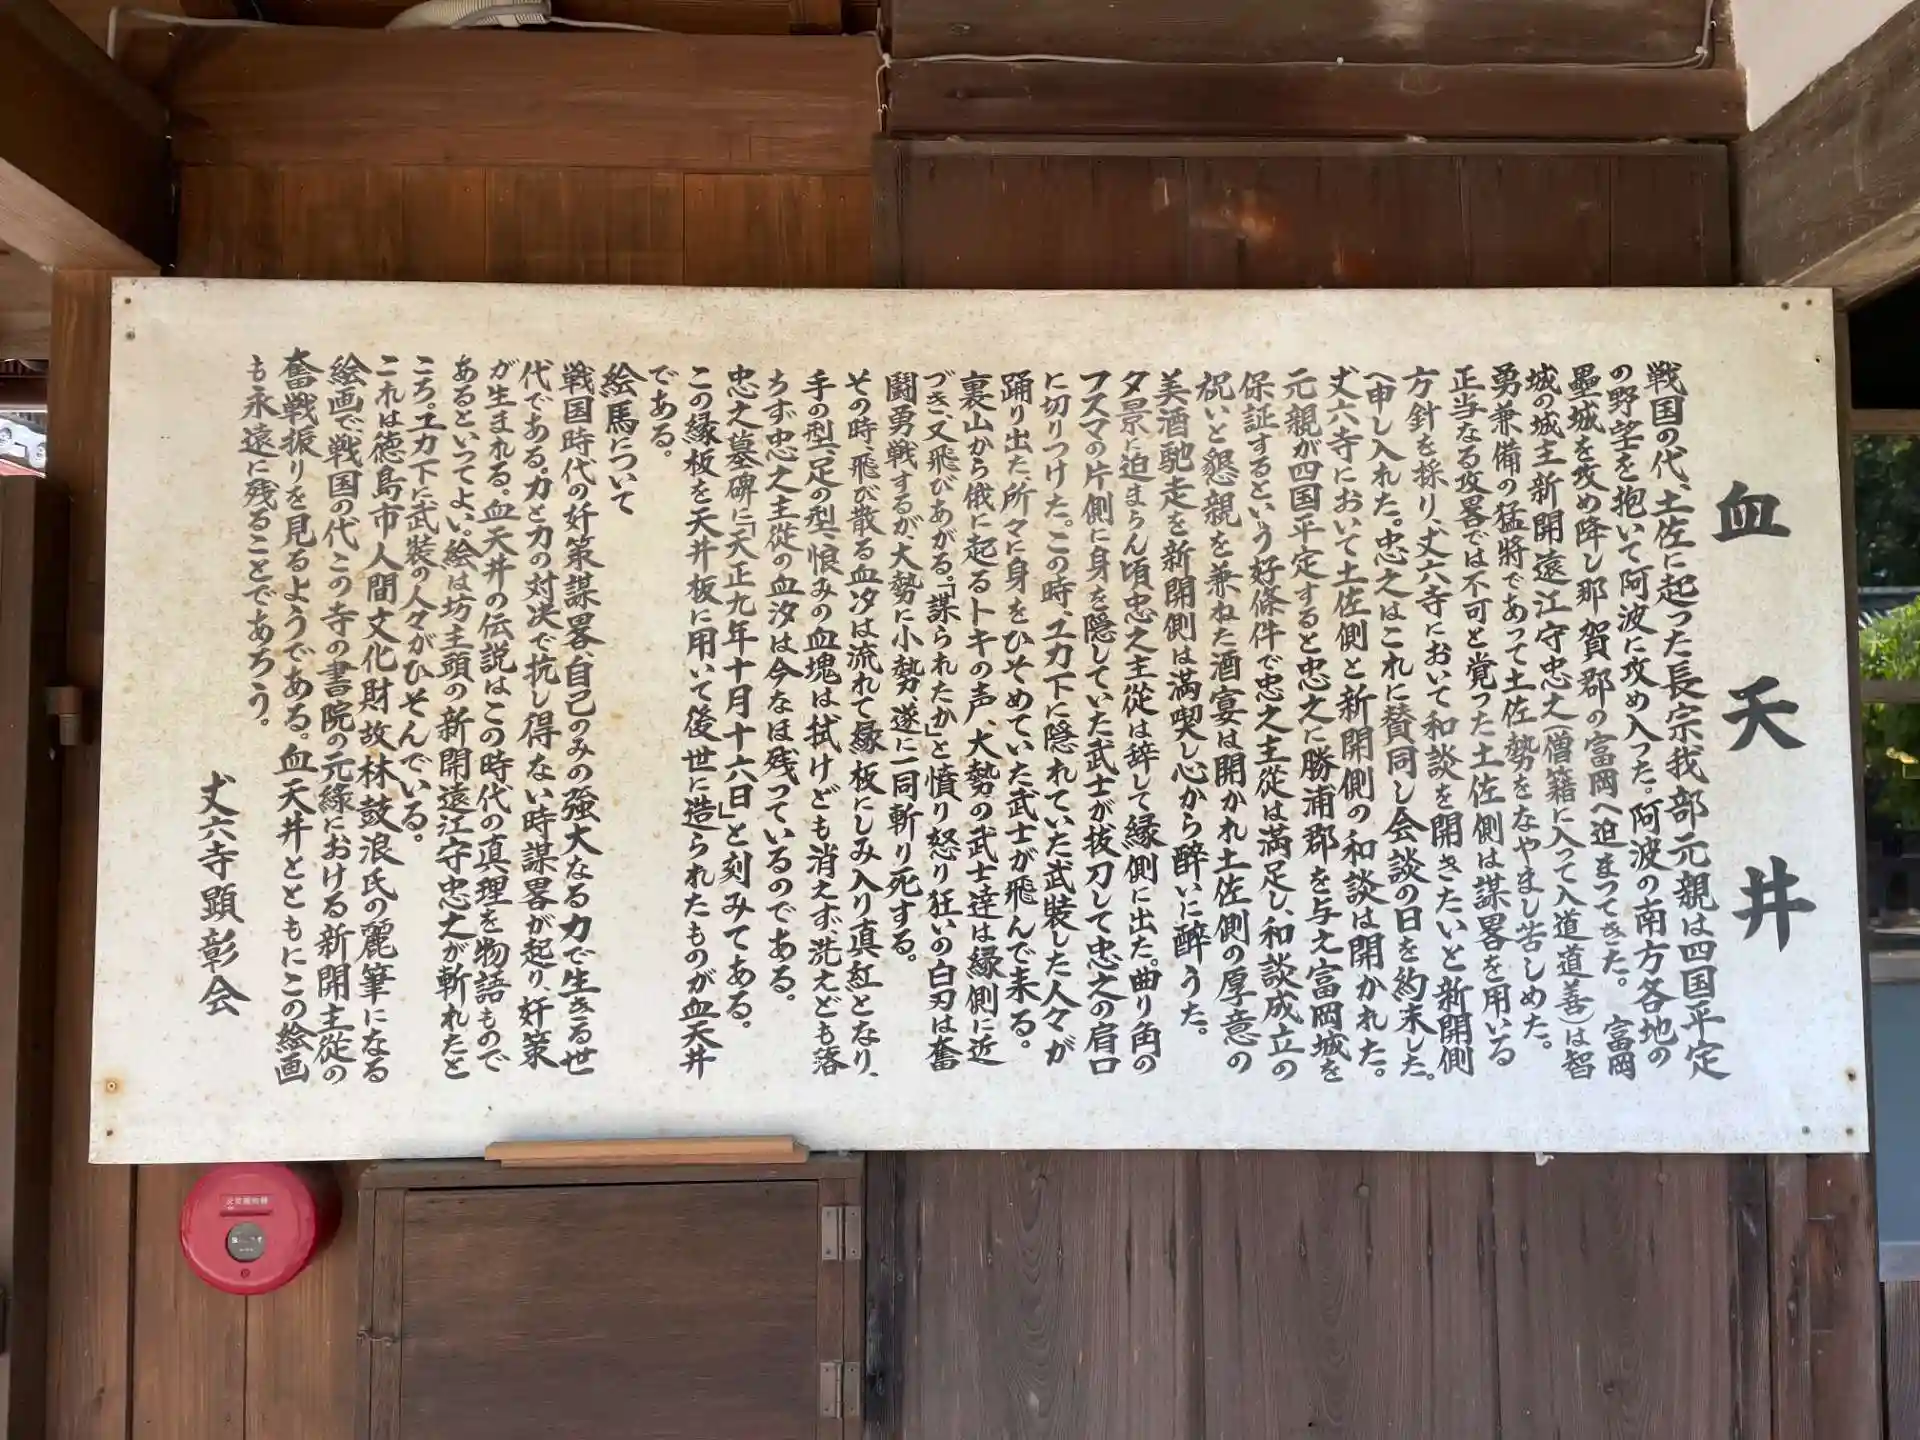 血天井
戦国の代、土佐に起った長宗我部元親は四国平定
の野望を抱いて阿波に攻め入った。阿波の南方各地の
塁城を攻め降し那賀郡の富岡へ迫まってきた。富岡
城の城主新開遠江守忠之(僧籍に入って入道道善)は智
勇兼備の猛將であって土佐勢をなやまし苦しめた。
正当なる攻畧では不可と覚った土佐側は謀畧を用いる
方針を採り、丈六寺において和談を開きたいと新開側
へ申し入れた。忠之はこれに賛同し会談の日を約束した。
丈六寺において土佐側と新開側の和談は開かれた。
元親が四国平定すると忠之に勝浦郡を与え富岡城を
保証するという好條件で忠之主從は満足し、和談成立の
祝いと懇親を兼ねた酒宴は開かれ土佐側の厚意の
美酒馳走を新開側は満喫し心から醉いに醉うた。
夕景に迫まらん頃忠之主從は辞して縁側に出た。曲り角の
フスマの片側に身を隠していた武士が抜刀して忠之の肩口
に切りつけた。この時、エカ下に隠れていた武裝した人々が
踊り出た、所々に身をひそめていた武士が飛んで来る。
裏山から俄に起るトキの声、大勢の武士達は縁側に近
づき、又飛びあがる。「謀られたか」と憤り怒り狂いの白刃は奮
闘勇戦するが、大勢に小勢遂に一同斬り死する。
その時、飛び散る血汐は流れて縁板にしみ入り真紅となり、
手の型、足の型、恨みの血塊は拭けども消えず、洗えども落
ちず忠之主從の血汐は今なほ残っているのである。
忠之墓碑に「天正九年十月十六日」と刻みてある。
この縁板を天井板に用いて後世に造られたものが血天井
である。
絵馬について
戦国時代の奸策謀畧、自己のみの強大なる力で生きる世
代である。力と力の対決で抗し得ない時謀畧が起り、奸策
が生まれる。血天井の伝説はこの時代の真理を物語もので
あるといってよい。絵は坊主頭の新開遠江守忠之が斬れたと
ころ。エカ下に武装の人々がひそんでいる。
これは徳島市人間文化財故林鼓浪氏の麗筆になる
絵画で戦国の代この寺の書院の元縁における新開主従の
奮戦振りを見るようである。血天井とともにこの絵画
も永遠に残ることであろう。
丈六寺顕彰会